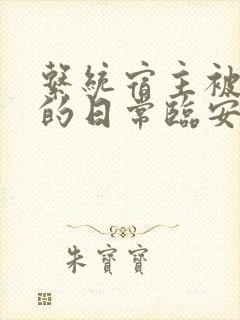 繫統宿主被
的日常臨安
朱寶寶